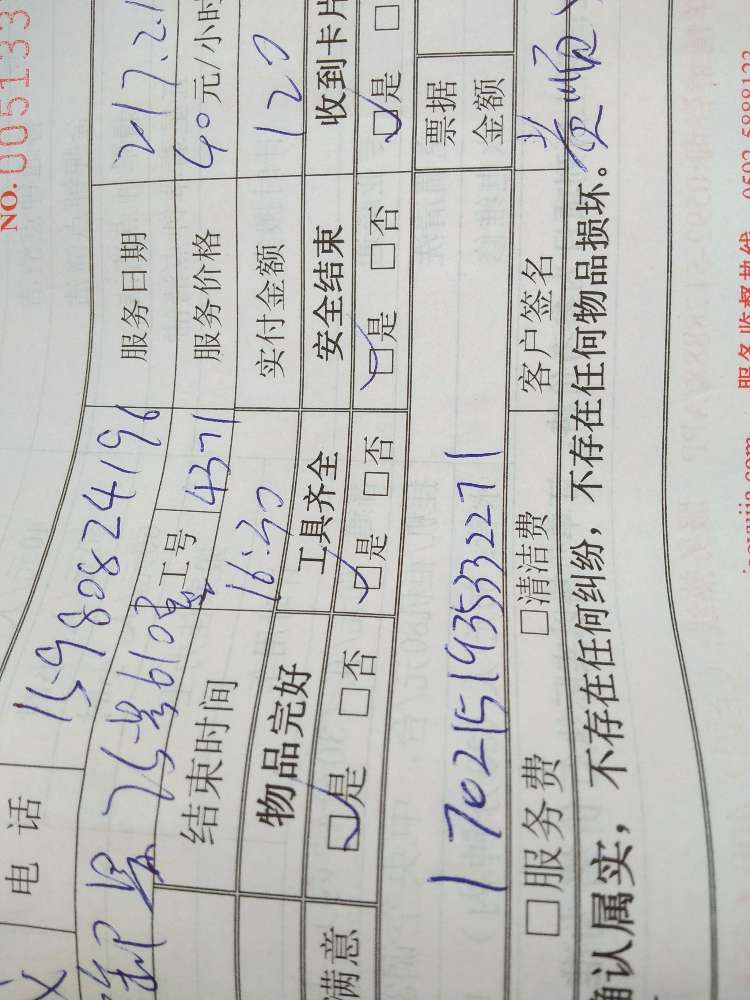 NO.005133
电 话 15980824196 服务日期 2017.2.1
25号610室 工号 4371 服务价格 40元/小时
结束时间 16:30 实付金额 120
物品完好 工具齐全 安全结束 收到卡片
满意 ☑是 □否 ☑是 □否 ☑是 □否 ☑是 □
1702151935332271 票据金额
□服务费 □清洁费 客户签名 黄顺
确认属实，不存在任何纠纷，不存在任何物品损坏。
服务监督热线 0592-5888123